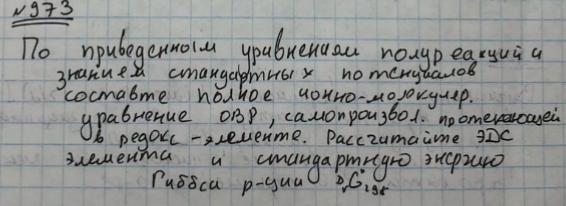 №973
По приведенным уравнениям полуреакций и
знанием стандартных потенциалов
составте полное ионно-молекуляр.
уравнение ОВР, самопроизвол. протекающей
в редокс-элементе. Рассчитайте ЭДС
элемента и стандартную энергию
Гиббса р-ции ΔrG°298